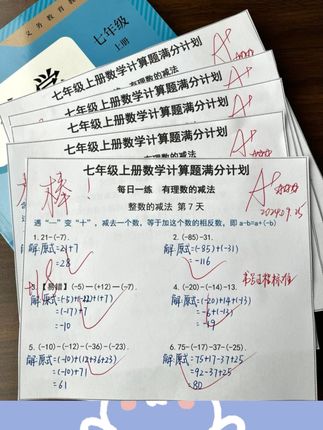 义务教育教
七年级
上册
学
七年级上册数学计算题满分计划
A+
七年级上册数学计算题满分计划
A+
七年级上册数学计算题满分计划
有理数的减法
七年级上册数学计算题满分计划
有理数的减法
A+
七年级上册数学计算题满分计划
棒!
A+
每日一练 有理数的减法
2024.09.25
整数的减法 第 7 天
遇“—”变“+”,减去一个数,等于加这个数的相反数,即 a-b=a+(-b)
1. 21-(-7). 2. (-85)-31.
解:原式=21+7 解:原式=(-85)+(-31)
=28 =-116
书写过程标准
3.【易错】(-5)—(+12)—(-7). 4. (-20)-(-14)-13.
解:原式=(-5)+(-12)+(+7) 解:原式=(-20)+14+(-13)
=(-17)+7 =-6+(-13)
=-10 =-19
5. (-10)-(-12)-(-36)-(-23). 6. 75-(-17)-37-(-25).
解:原式=(-10)+(12+36+23) 解:原式=75+17-37+25
=(-10)+71 =92-37+25
=61 =80